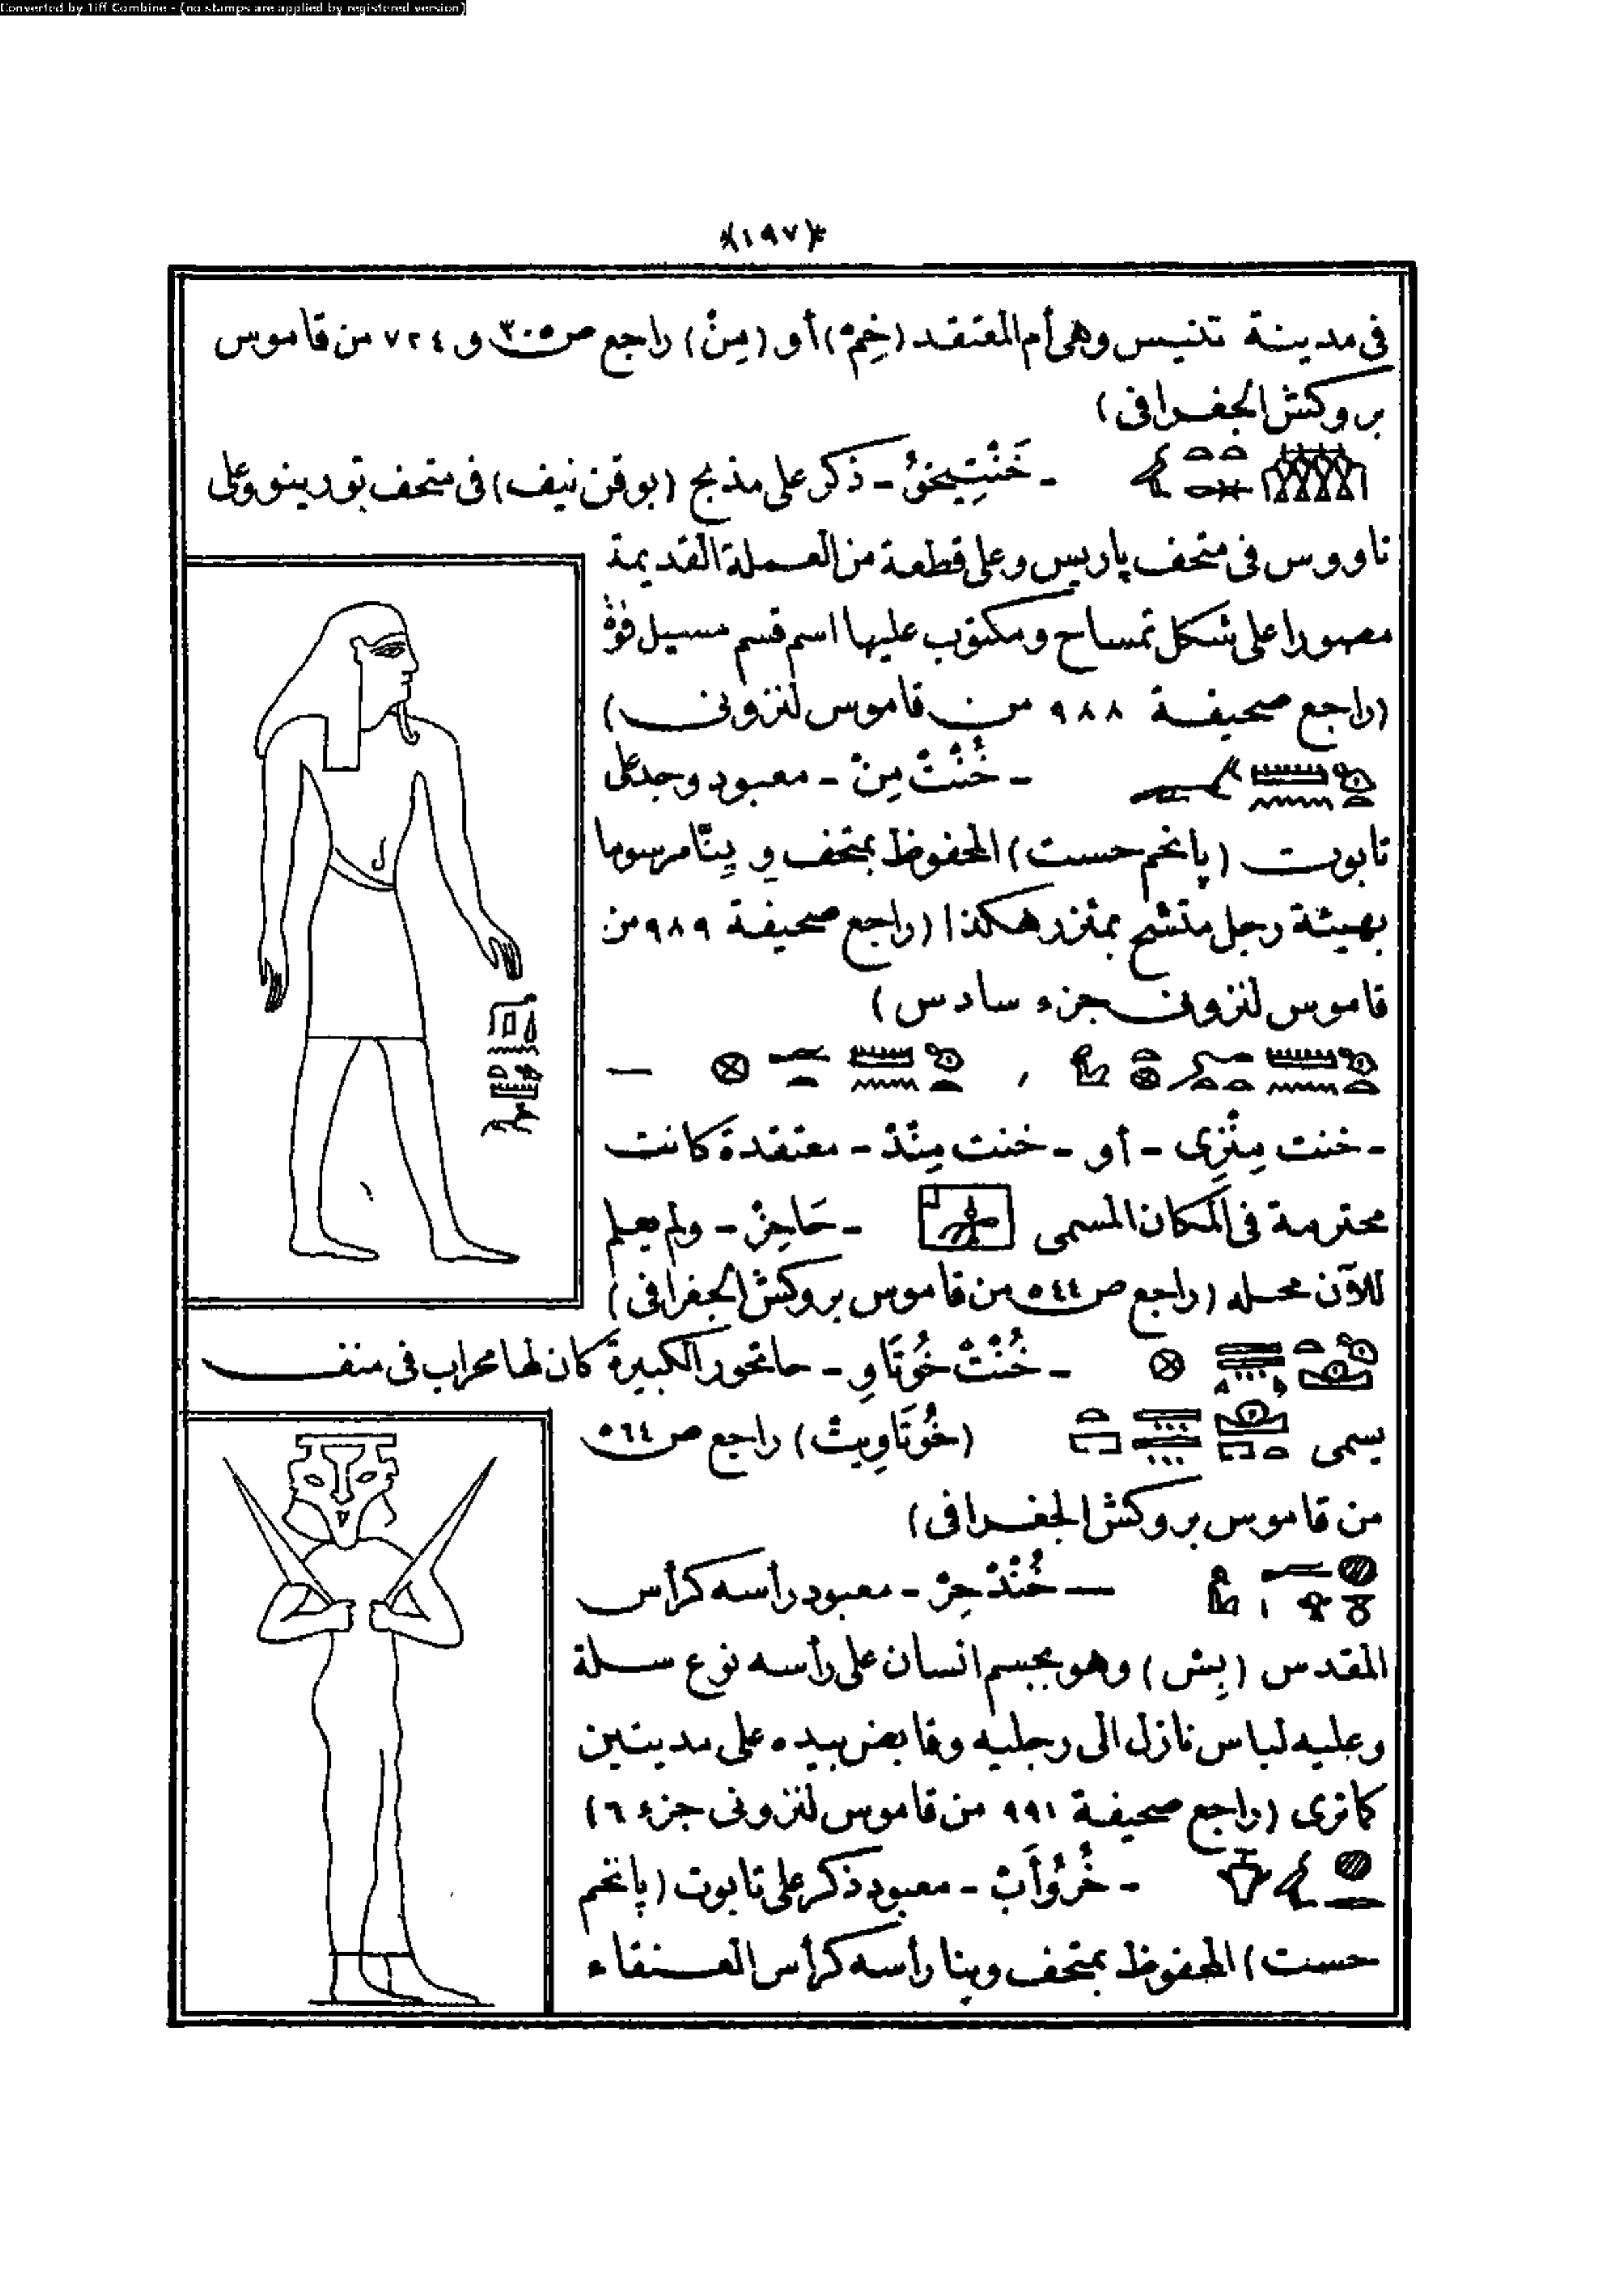 Converted by Tiff Combine - (no stamps are applied by registered version)
﴿١٩٧﴾
فى مدينة تنيس وهى أم المعتقد (خِمْ) أو (مِنْ) راجع ص ٣٠٥ و ٧٢٤ من قاموس
بروكش الجغرافى)
- خَنْتِيخى - ذكر على مذبح (بوقرن نيف) فى متحف تورينو وعلى
ناووس فى متحف پاريس وعلى قطعة من العملة القديمة
مصورا على شكل تمساح ومكتوب عليها اسم قسم مسيل فوة
(راجع صحيفة ٩٨٨ من قاموس لنزونى)
- خُنْتْ مِنْ - معبود وجد على
تابوت (پانخم حست) المحفوظ بمتحف وِيِنَّا مرسوما
بهيئة رجل متشح بمئزر هكذا (راجع صحيفة ٩٨٩ من
قاموس لنزونى جزء سادس)
- خنت مِنْتِى - أو - خنت مِنْتْ - معتقدة كانت
محترمة فى المكان المسمى - حَاخِنْ - ولم يعلم
للآن محله (راجع ص ٥٤٤ من قاموس بروكش الجغرافى)
- خُنْتْ خُوتَاوِ - حاتحور الكبيرة كان لها محراب فى منف
يسمى (خُوتَاوِيتْ) راجع ص ٥٦٤
من قاموس بروكش الجغرافى)
— خُنْدْ حِرْ - معبود رأسه كرأس
المقدس (بِسْ) وهو بجسم انسان على رأسه نوع سلة
وعليه لباس نازل الى رجليه وقابض بيده على مديتين
كما ترى (راجع صحيفة ٩٩١ من قاموس لنزونى جزء ٦)
- خُرُوأَبْ - معبود ذكر على تابوت (پانخم
حست) المحفوظ بمتحف وينا رأسه كرأس العنقاء